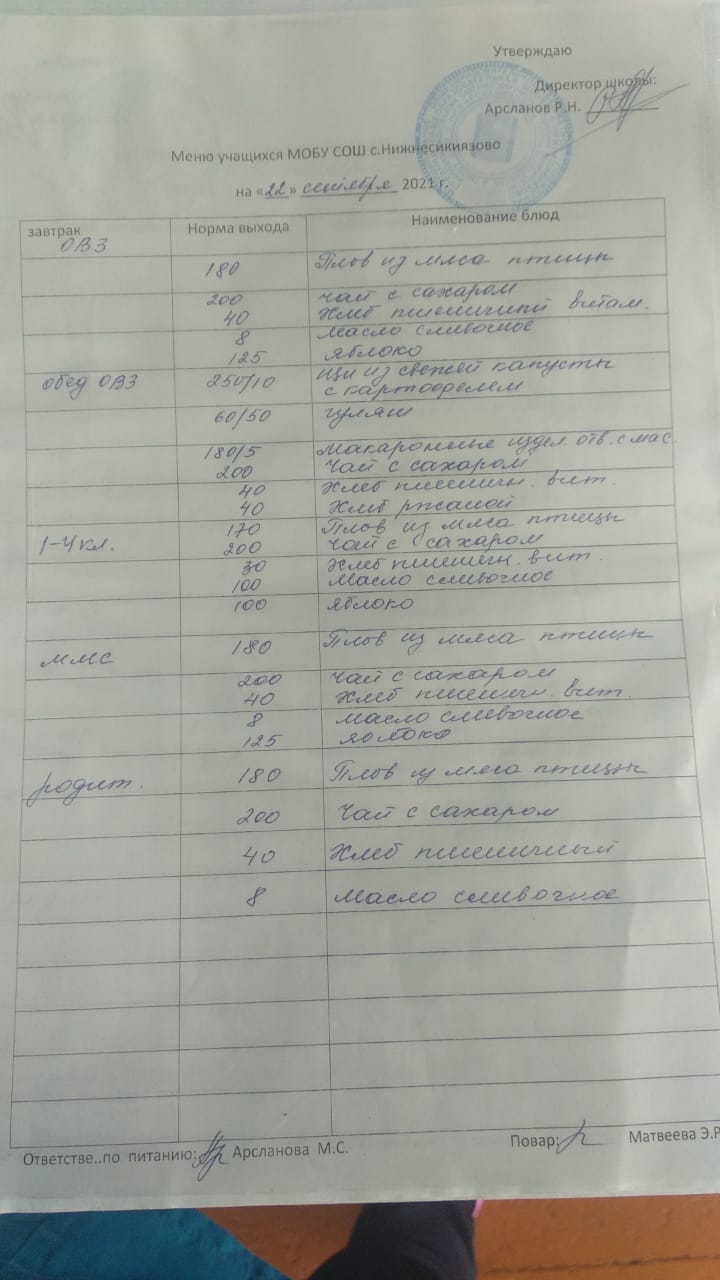 Утверждаю
Директор школы:
Арсланов Р.Н.
Меню учащихся МОБУ СОШ с.Нижнесикиязово
на «22» сентября 2021 г.
завтрак Норма выхода Наименование блюд
ОВЗ
180 Плов из мяса птицы
200 чай с сахаром
40 Хлеб пшеничный витам.
8 Масло сливочное
125 яблоко
обед ОВЗ 250/10 щи из свежей капусты
с картофелем
60/50 гуляш
180/5 Макаронные издел. отв. с мас.
200 Чай с сахаром
40 Хлеб пшеничн. вит.
40 Хлеб ржаной
170 Плов из мяса птицы
1-4 кл. 200 чай с сахаром
30 Хлеб пшеничн. вит.
100 Масло сливочное
100 яблоко
ммс 180 Плов из мяса птицы
200 Чай с сахаром
40 Хлеб пшеничн. вит.
8 Масло сливочное
125 яблоко
родит. 180 Плов из мяса птицы
200 Чай с сахаром
40 Хлеб пшеничный
8 Масло сливочное
Ответстве..по питанию: Арсланова М.С. Повар: Матвеева Э.Р